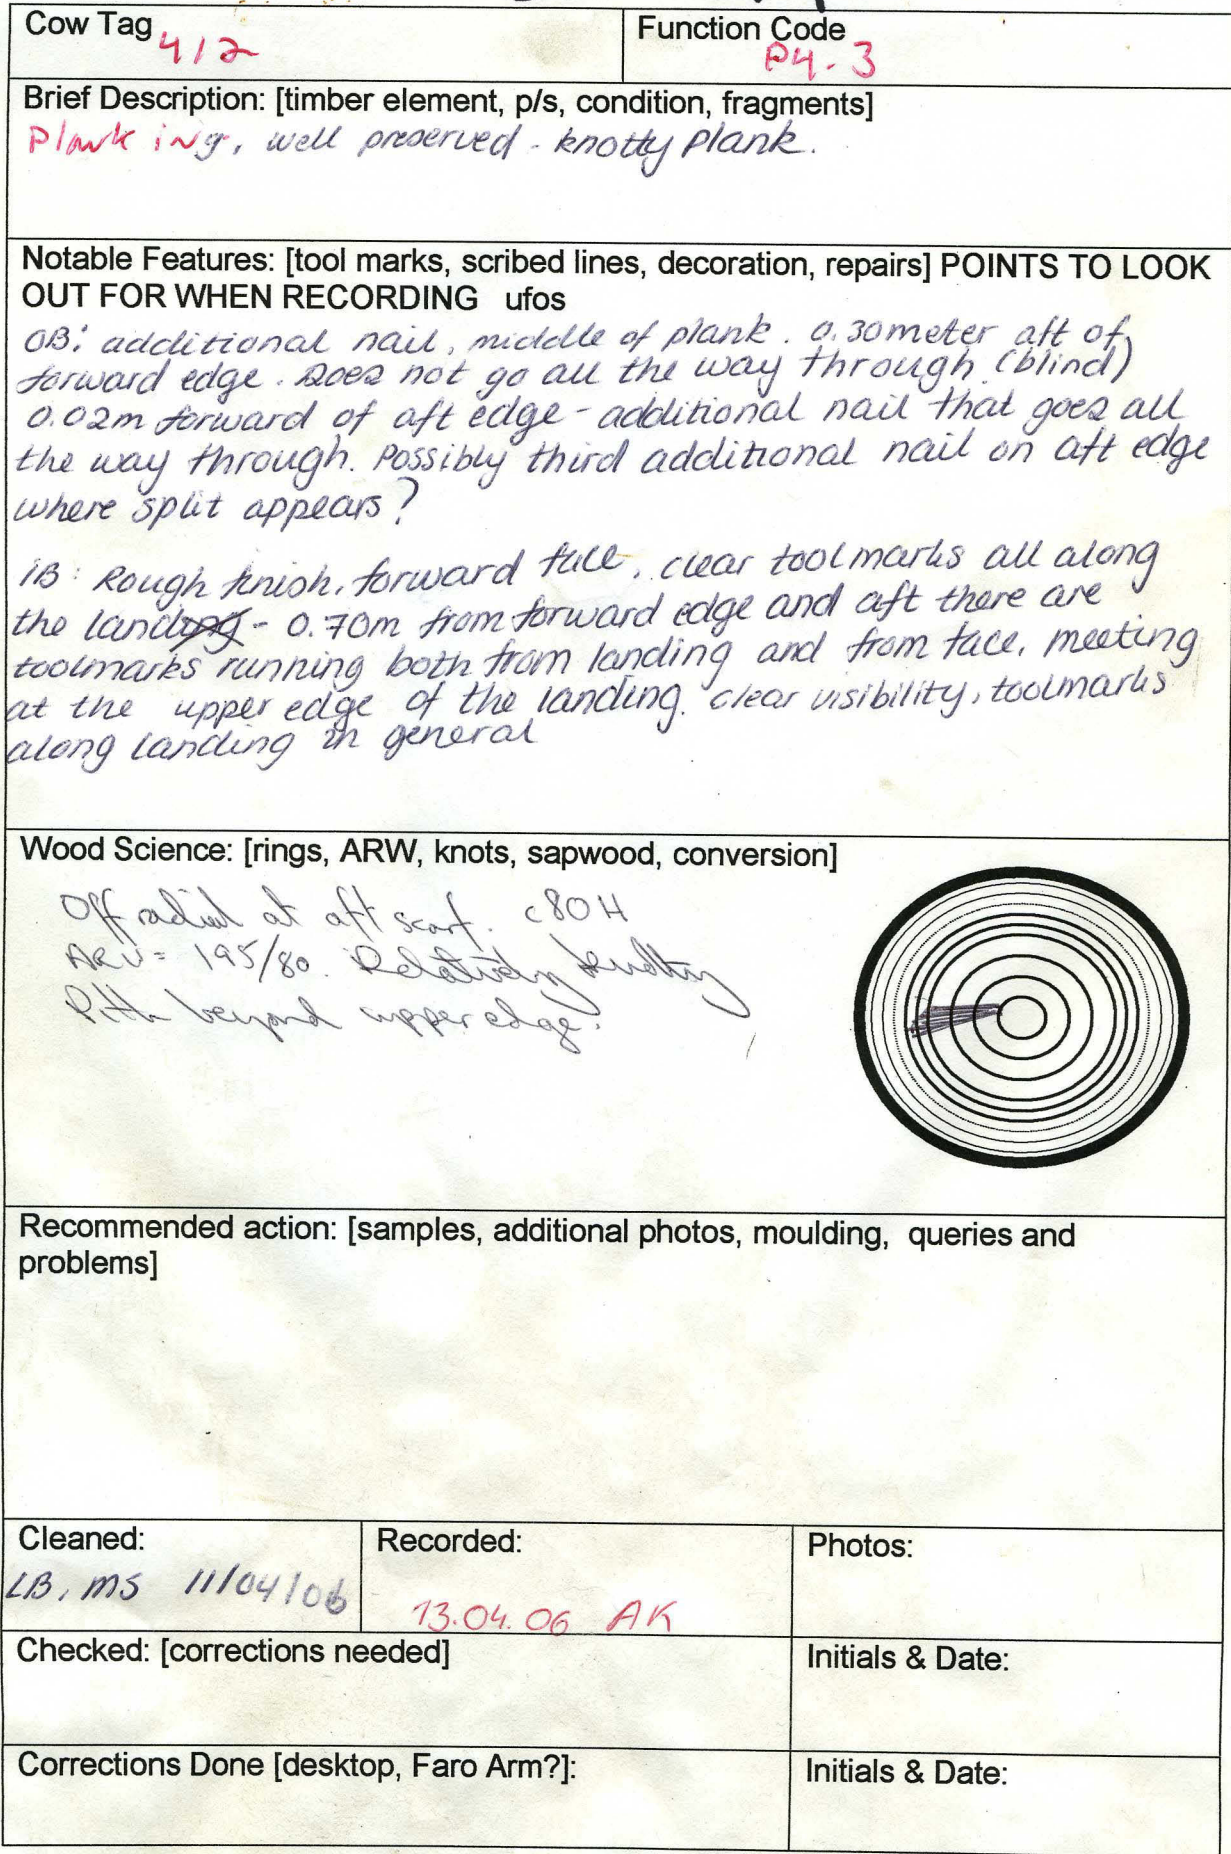 Cow Tag 412
Function Code
P4-3
Brief Description: [timber element, p/s, condition, fragments]
Planking, well preserved - knotty plank.
Notable Features: [tool marks, scribed lines, decoration, repairs] POINTS TO LOOK
OUT FOR WHEN RECORDING ufos
OB: additional nail, middle of plank. 0.30meter aft of
forward edge. Does not go all the way through (blind)
0.02m forward of aft edge - additional nail that goes all
the way through. Possibly third additional nail on aft edge
where split appears?
IB: Rough finish, forward face, clear toolmarks all along
the landing - 0.70m from forward edge and aft there are
toolmarks running both from landing and from face, meeting
at the upper edge of the landing. clear visibility, toolmarks
along landing in general
Wood Science: [rings, ARW, knots, sapwood, conversion]
Off radial at aft scarf. c80H
ARW= 195/80. Relatively knotty
Pith beyond upper edge.
Recommended action: [samples, additional photos, moulding, queries and
problems]
Cleaned:
LB, MS 11/04/06
Recorded:
13.04.06 AK
Photos:
Checked: [corrections needed]
Initials & Date:
Corrections Done [desktop, Faro Arm?]:
Initials & Date: